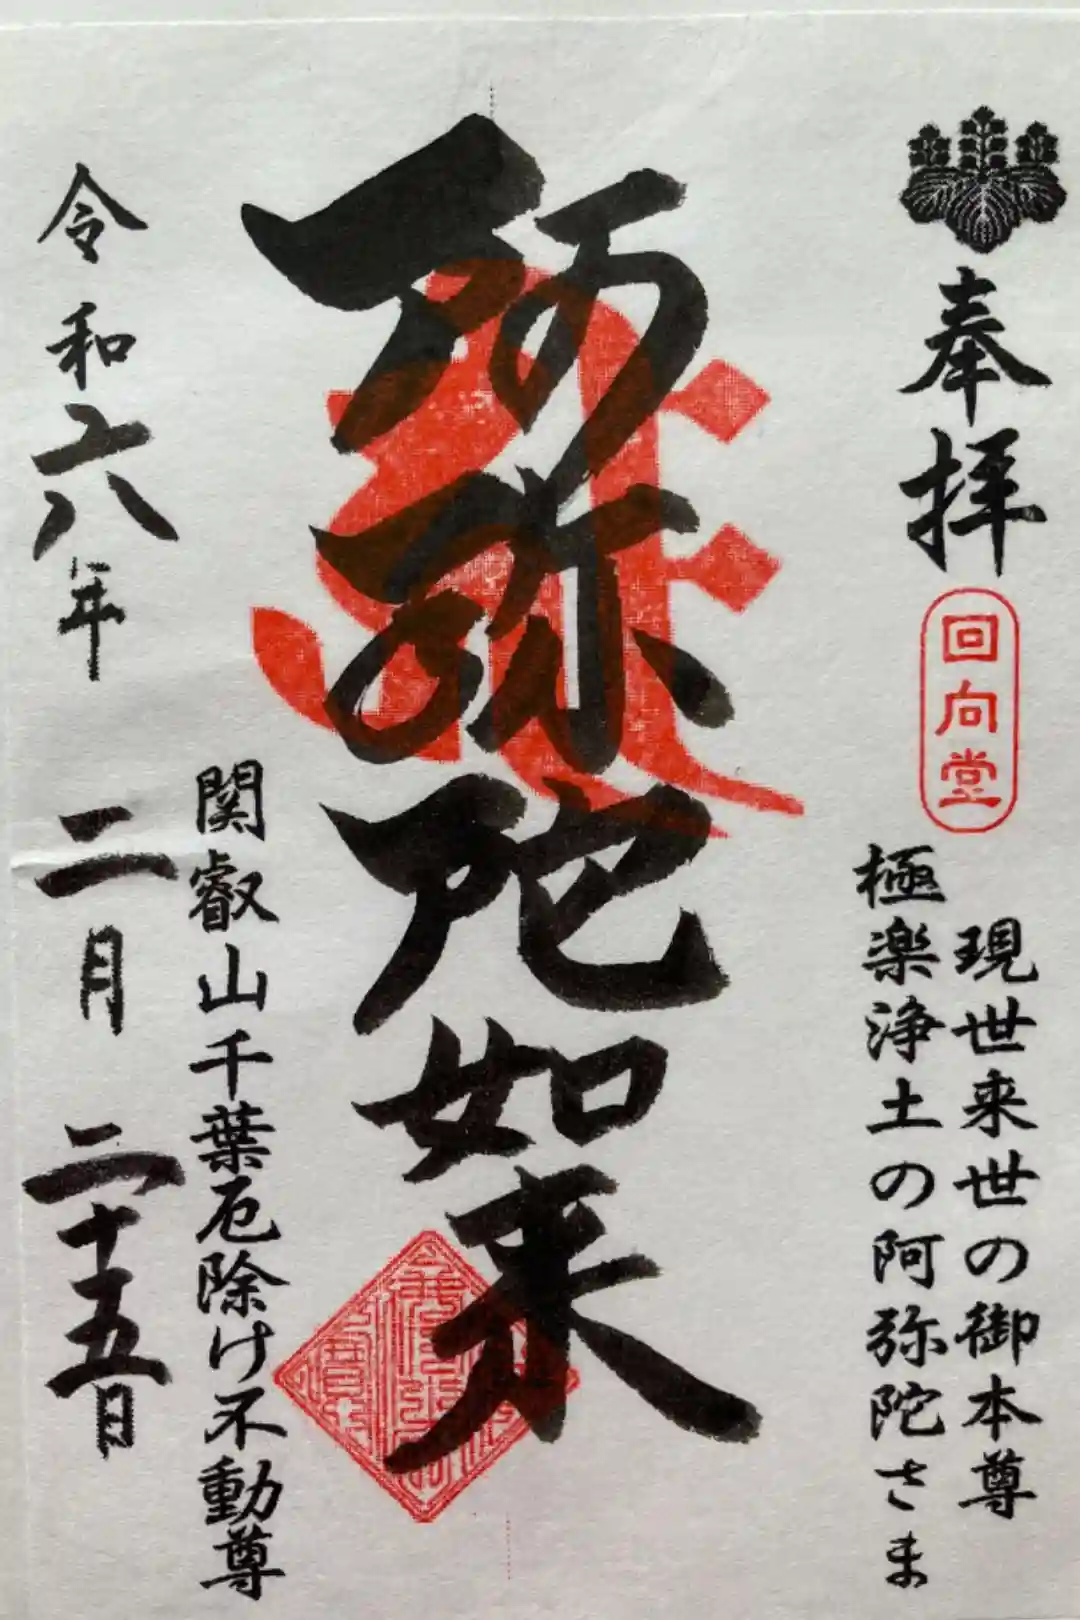 奉拝
回向堂
現世来世の御本尊
極楽浄土の阿弥陀さま
阿弥陀如来
関叡山千葉厄除け不動尊
令和六年二月二十五日